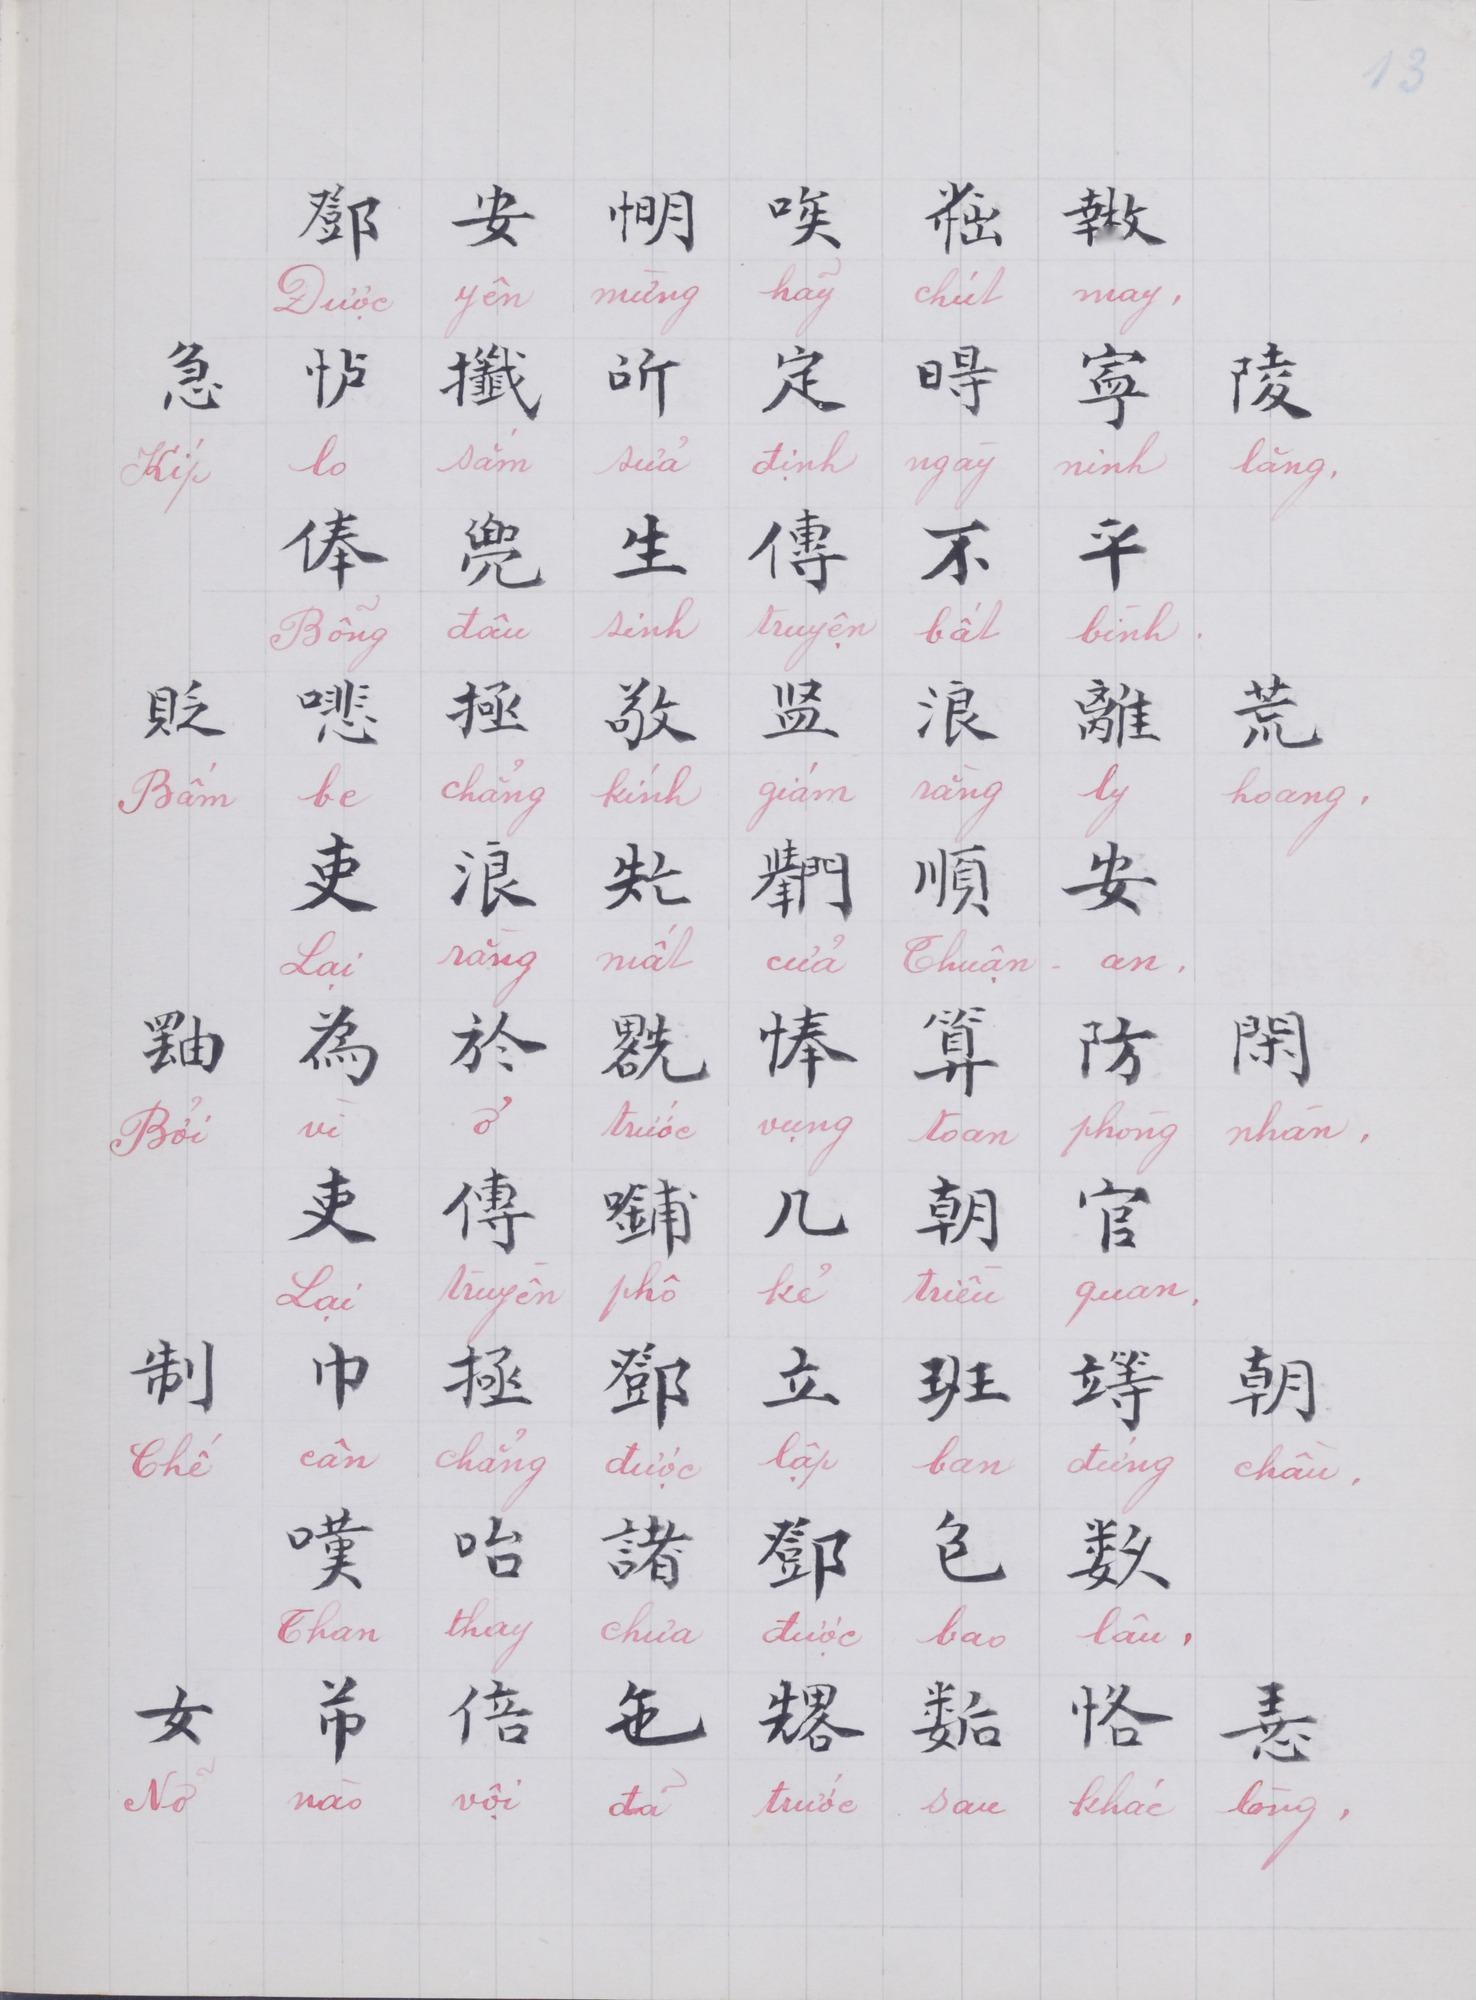 13
鄧安𢜏唉𡭧𢠩
Được yên mừng hãy chút may,
急怙攕𫽄定𣈜寧陵
Kíp lo sắm sửa định ngày ninh lăng,
俸兜生傳不平
Bỗng đâu sinh truyện bất bình.
貶悲極敬监浪離荒
Bẩm be chẳng kính giám rằng ly hoang,
吏浪𠅎𨷶順安
Lại rằng mất cửa Thuận-an,
為於𠓀俸算防閑
Bởi vì ở trước vụng toan phòng nhàn,
吏傳鋪几朝官
Lại truyền phô kẻ triều quan,
制巾極鄧立班竚朝
Chế cân chẳng được lập ban đứng chầu,
嘆咍諸鄧包数
Than thay chưa được bao lâu,
女芇倍㐌𠓀𢖕恪𢚸
Nỡ nào vội đã trước sau khác lòng,